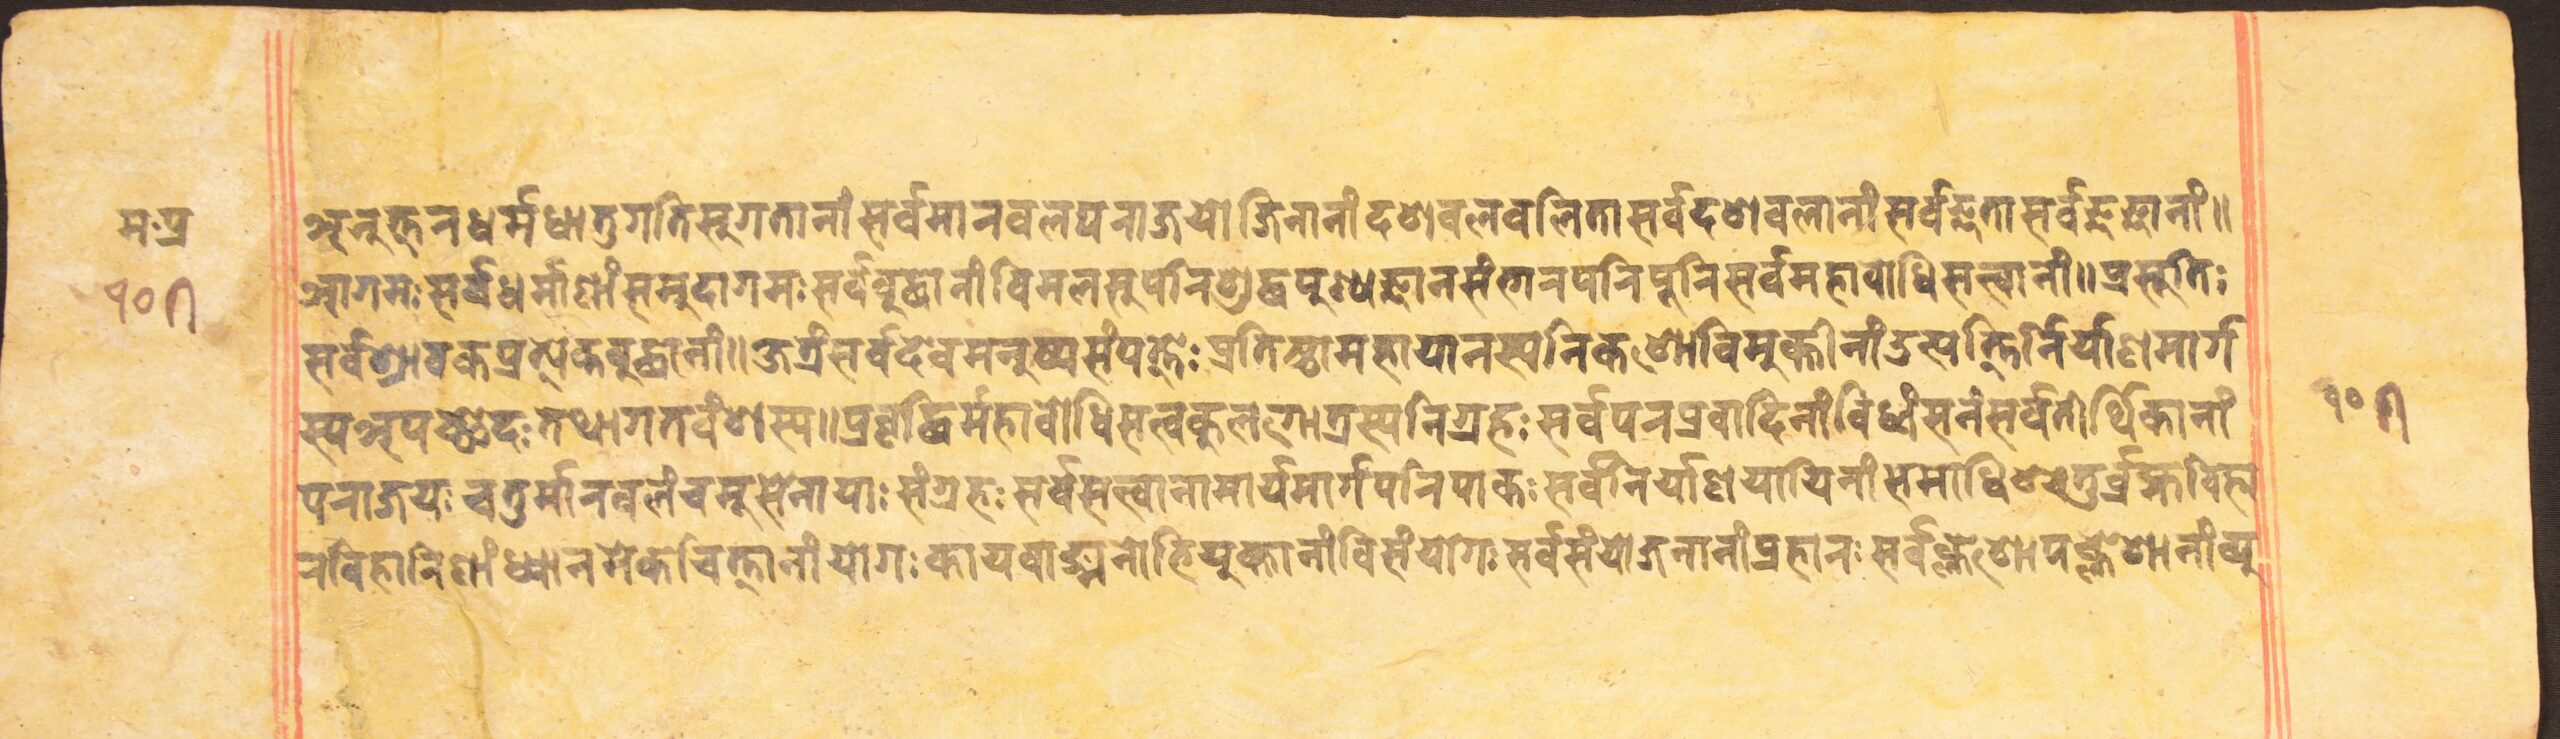 मःप्र
१०१
अनुत्तरधर्मधातुगतिसुगतानां सर्वमारबलपराजयो जिनानां दशबलबलिता सर्वदशबलानां सर्वज्ञता सर्वज्ञज्ञानां॥
आगमः सर्वधर्माणां समुदागमः सर्वबुद्धानां विमलसुपरिशुद्धपुण्यज्ञानसंभारपरिपूरि सर्वमहाबोधिसत्त्वानां॥ प्रसूतिः
सर्वश्रावकप्रत्येकबुद्धानां॥ क्षेत्रं सर्वदेवमनुष्यसंपत्तेः प्रतिष्ठा महायानस्य निकशो विमुक्तीनां उत्पत्तिर्निर्याणमार्ग
स्य अपच्छेदः तथागतवंशस्य॥ प्रवृद्धिर्महाबोधिसत्वकुलगोत्रस्य निग्रहः सर्वपरप्रवादिनां विध्वंसनं सर्वतीर्थिकानां
पराजयः चतुर्मारबलं चमूसेनायाः संग्रहः सर्वसत्त्वानामार्यमार्गपरिपाकः सर्वनिर्याणयायिनां समाधिश्चतुर्ब्रह्मविह
रविहारिणां ध्यानमेकचित्तानां योगः कायवाङ्मनोभियुक्तानां विसंयोगः सर्वसंयोजनानां प्रहानः सर्वक्लेशोपक्लेशानां व्यु
१०१